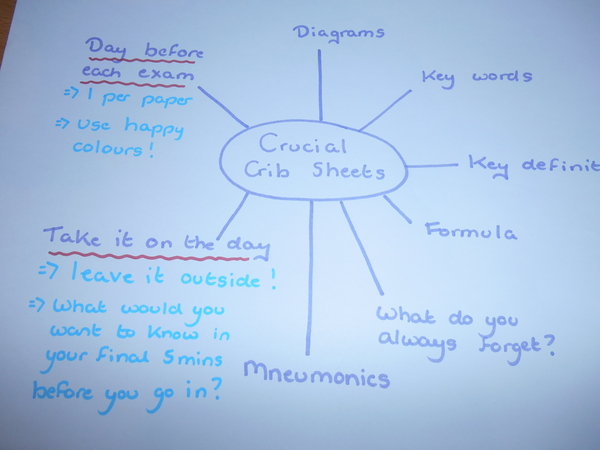 Diagrams
Day before
each exam
=> 1 per paper
=> Use happy
colours!
Key words
Crucial
Crib Sheets
Key definit
Formula
Take it on the day
=> leave it outside!
=> What would you
want to know in
your final 5 mins
before you go in?
What do you
always forget?
Mneumonics